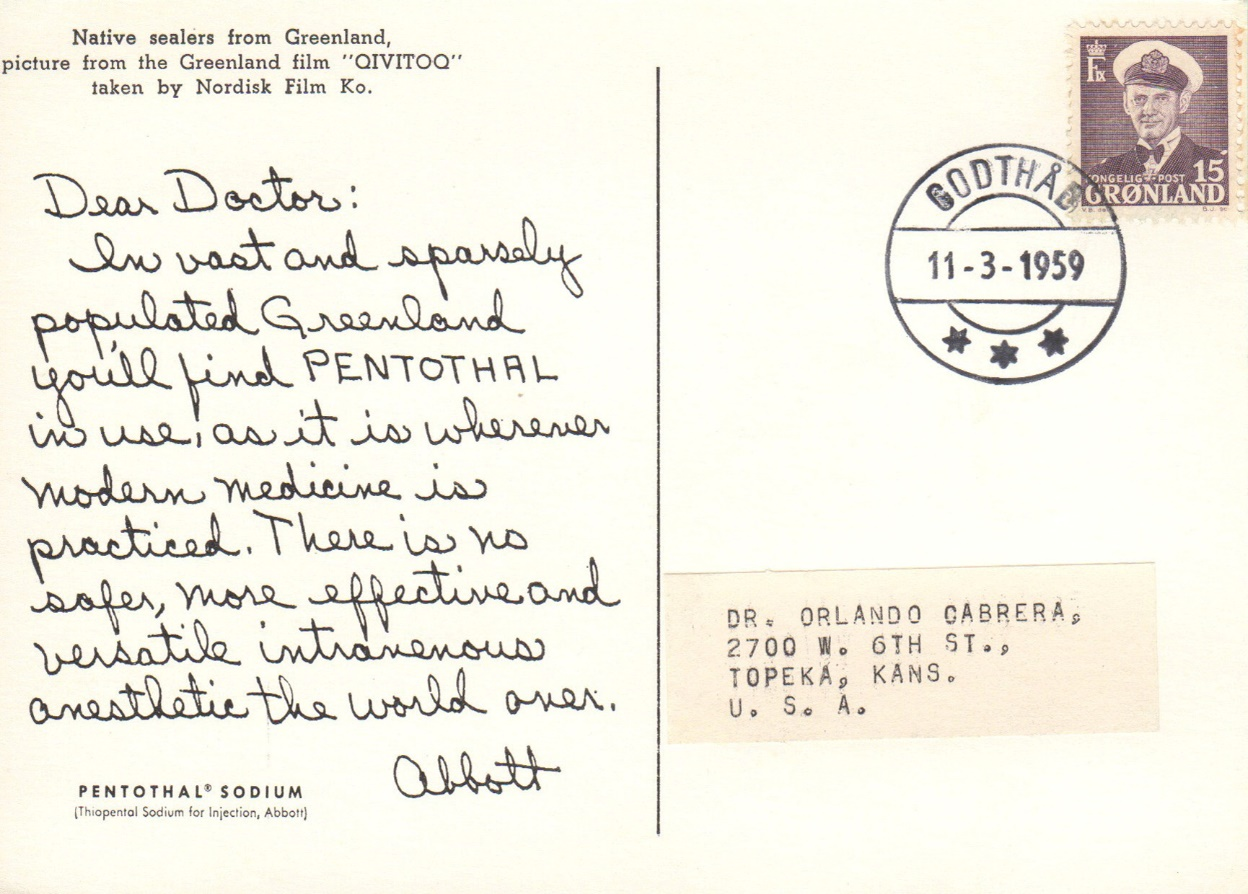 Native sealers from Greenland,
picture from the Greenland film "QIVITOQ"
taken by Nordisk Film Ko.
Dear Doctor:
In vast and sparsely
populated Greenland
you'll find PENTOTHAL
in use, as it is wherever
modern medicine is
practiced. There is no
safer, more effective and
versatile intravenous
anesthetic the world over.
Abbott
PENTOTHAL® SODIUM
(Thiopental Sodium for Injection, Abbott)
F IX
ONGELIG POST 15
GRØNLAND
GODTHÅB
11-3-1959
DR. ORLANDO CABRERA,
2700 W. 6TH ST.,
TOPEKA, KANS.
U. S. A.